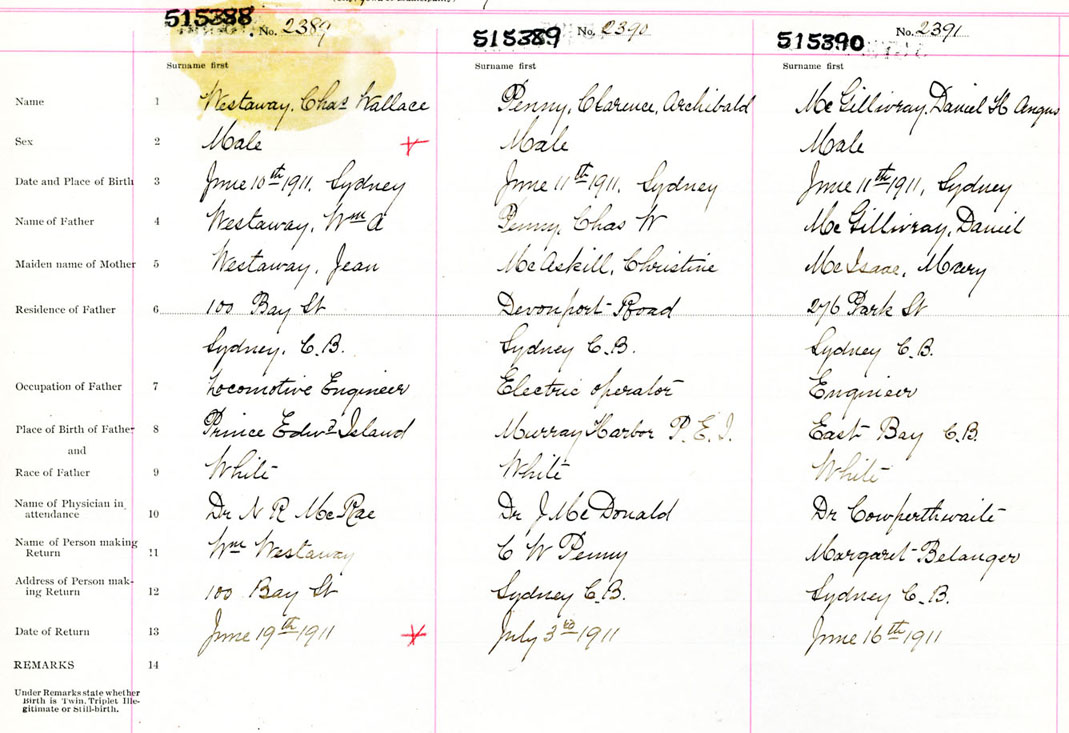 515388 No. 2389 515389 No. 2390 515390 No. 2391
Surname first Surname first Surname first
Name 1 Westaway, Chas Wallace Penny, Clarence, Archibald McGillivray, Daniel H Angus
Sex 2 Male Male Male
Date and Place of Birth 3 June 10th 1911, Sydney June 11th 1911, Sydney June 11th 1911, Sydney
Name of Father 4 Westaway, Wm A Penny, Chas W McGillivray, Daniel
Maiden name of Mother 5 Westaway, Jean McAskill, Christine McIsaac, Mary
Residence of Father 6 100 Bay St Devonport Road 276 Park St
Sydney, C.B. Sydney C.B. Sydney C.B.
Occupation of Father 7 Locomotive Engineer Electric operator Engineer
Place of Birth of Father 8 Prince Edwd Island Murray Harbor P.E.I. East Bay C.B.
and
Race of Father 9 White White White
Name of Physician in
attendance 10 Dr N R McRae Dr J McDonald Dr Cowperthwaite
Name of Person making
Return 11 Wm Westaway C W Penny Margaret Belanger
Address of Person mak-
ing Return 12 100 Bay St Sydney C.B. Sydney C.B.
Date of Return 13 June 19th 1911 July 3rd 1911 June 16th 1911
REMARKS 14
Under Remarks state whether
Birth is Twin, Triplet Ille-
gitimate or Still-birth.